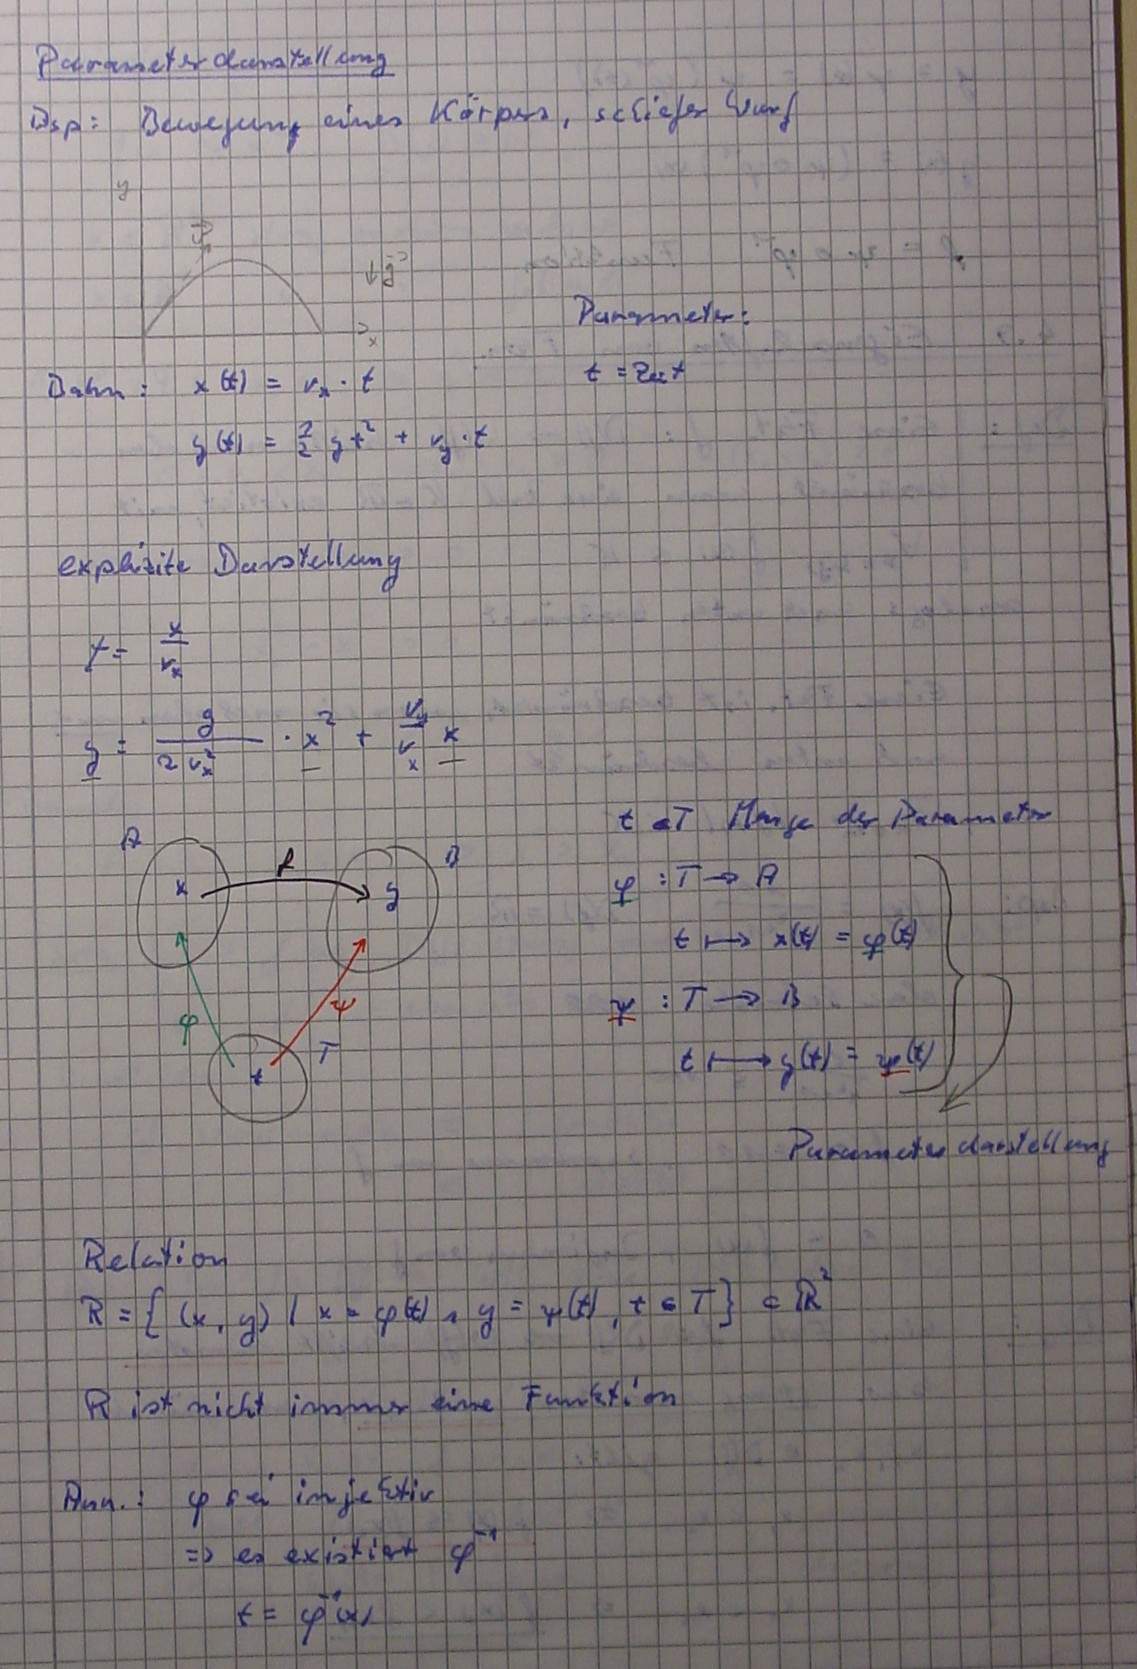 Parameterdarstellung
Bsp: Bewegung eines Körpers, schiefer Wurf
y
x
↓ g
Parameter:
t = Zeit
Bahn: x(t) = vₓ · t
y(t) = 1/2 g t² + v_y · t
explizite Darstellung
t = x/vₓ
y = g/(2 vₓ²) · x² + v_y/vₓ x
A
x
f
y
B
φ
ψ
T
t
t ∈ T Menge der Parameter
φ : T → A
t ↦ x(t) = φ(t)
ψ : T → B
t ↦ y(t) = ψ(t)
Parameterdarstellung
Relation
R = { (x, y) | x = φ(t) ∧ y = ψ(t), t ∈ T } ⊂ ℝ²
R ist nicht immer eine Funktion
Ann.: φ sei injektiv
=> es existiert φ⁻¹
t = φ⁻¹(x)